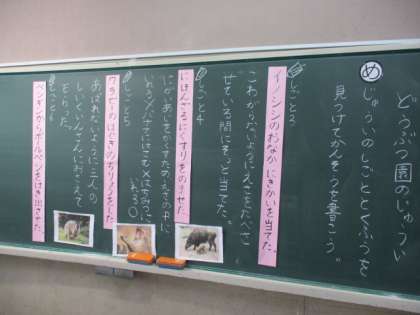 どうぶつ園のじゅうい
め じゅういのしごととくふうを
見つけてかんそうを書こう。
しごと3
イノシシのおなかにきかいを当てた。
こわがらないようにえさをたべさ
せている間にそっと当てた。
しごと4
にほんざるにくすりをのませた。
にがいあじをくすりのこなの中に
いれる×バナナにはさむ×はちみつに
いれる○
ワラビーのはぐきのちりょうをした。
あばれないように三人の
しいくいんさんにおさえて
もらった。
しごと6
ペンギンからボールペンをはき出させた。